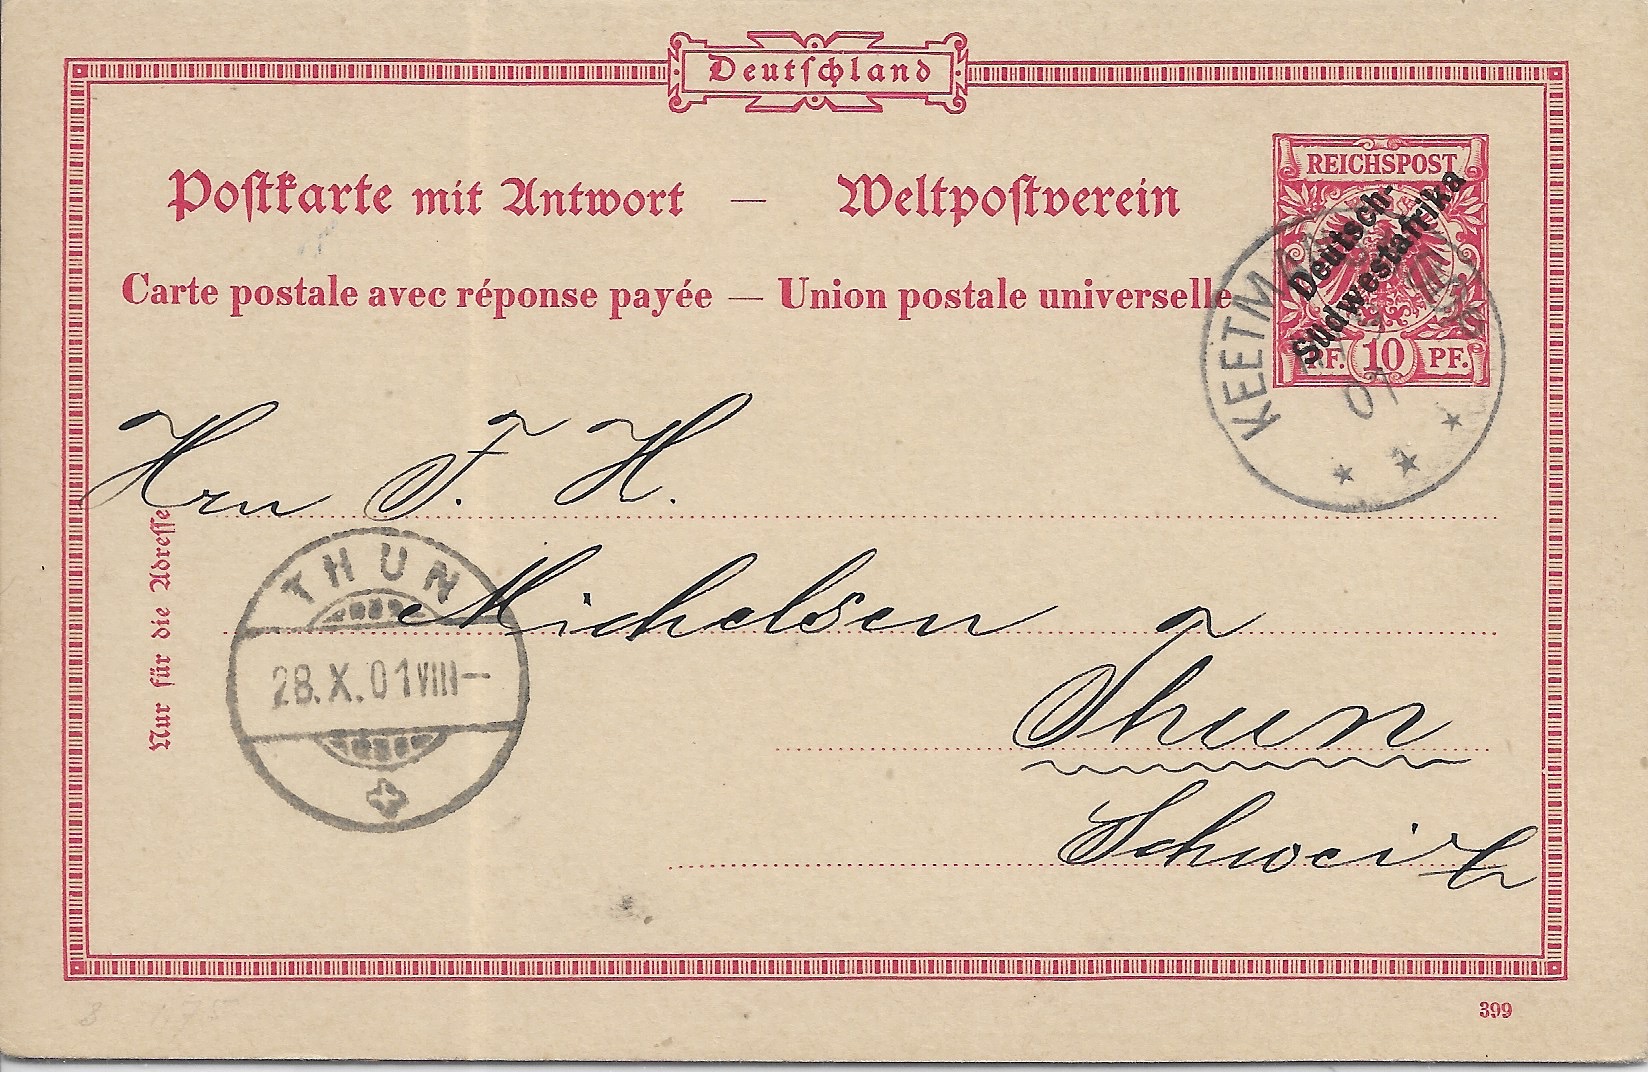 Deutschland
Postkarte mit Antwort — Weltpostverein
Carte postale avec réponse payée — Union postale universelle
REICHSPOST
Deutsch-
Südwestafrika
PF. 10 PF.
Hrn F. H.
Michelsen
Thun
Schweiz
Nur für die Adresse
THUN
28.X.01 VIII—
399